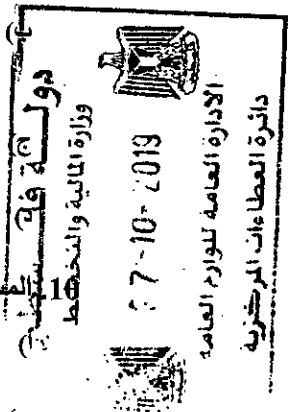 دولــــــة فلسطين
وزارة المالية والتخطيط
7-10-2019
الادارة العامة للوازم العامة
دائرة العطاءات المركزية